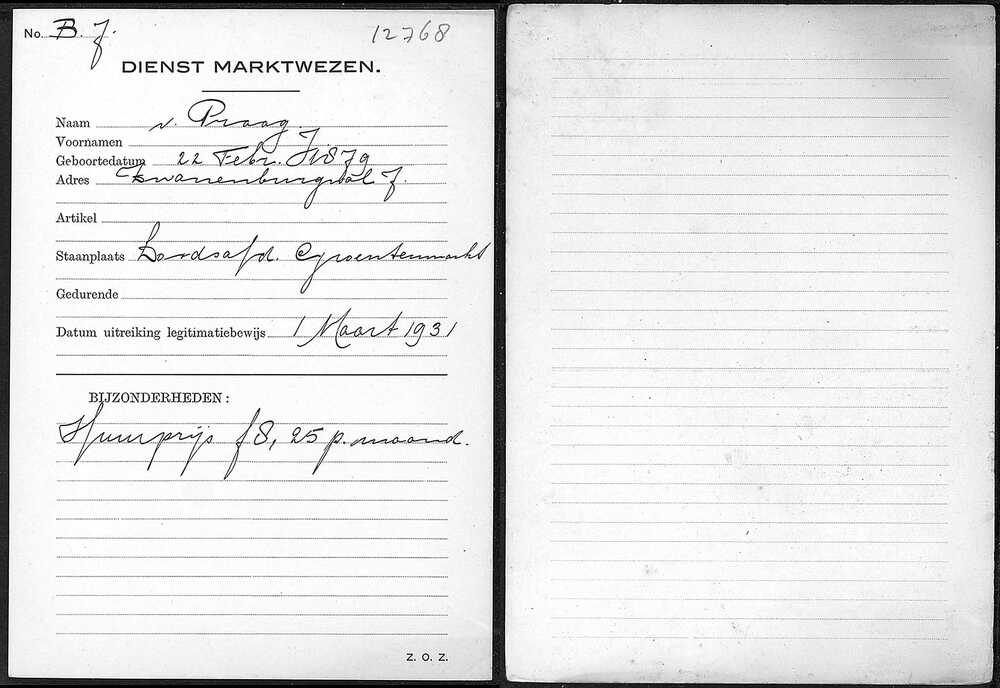 No. B. 7.
12768
DIENST MARKTWEZEN.
Naam v. Praag.
Voornamen
Geboortedatum 22 Febr. 1879
Adres Zwanenburgwal 7.
Artikel
Staanplaats Loodsafd. Groentenmarkt
Gedurende
Datum uitreiking legitimatiebewijs 1 Maart 1931
BIJZONDERHEDEN:
Huurprijs f 8,25 p. maand.
Z. O. Z.